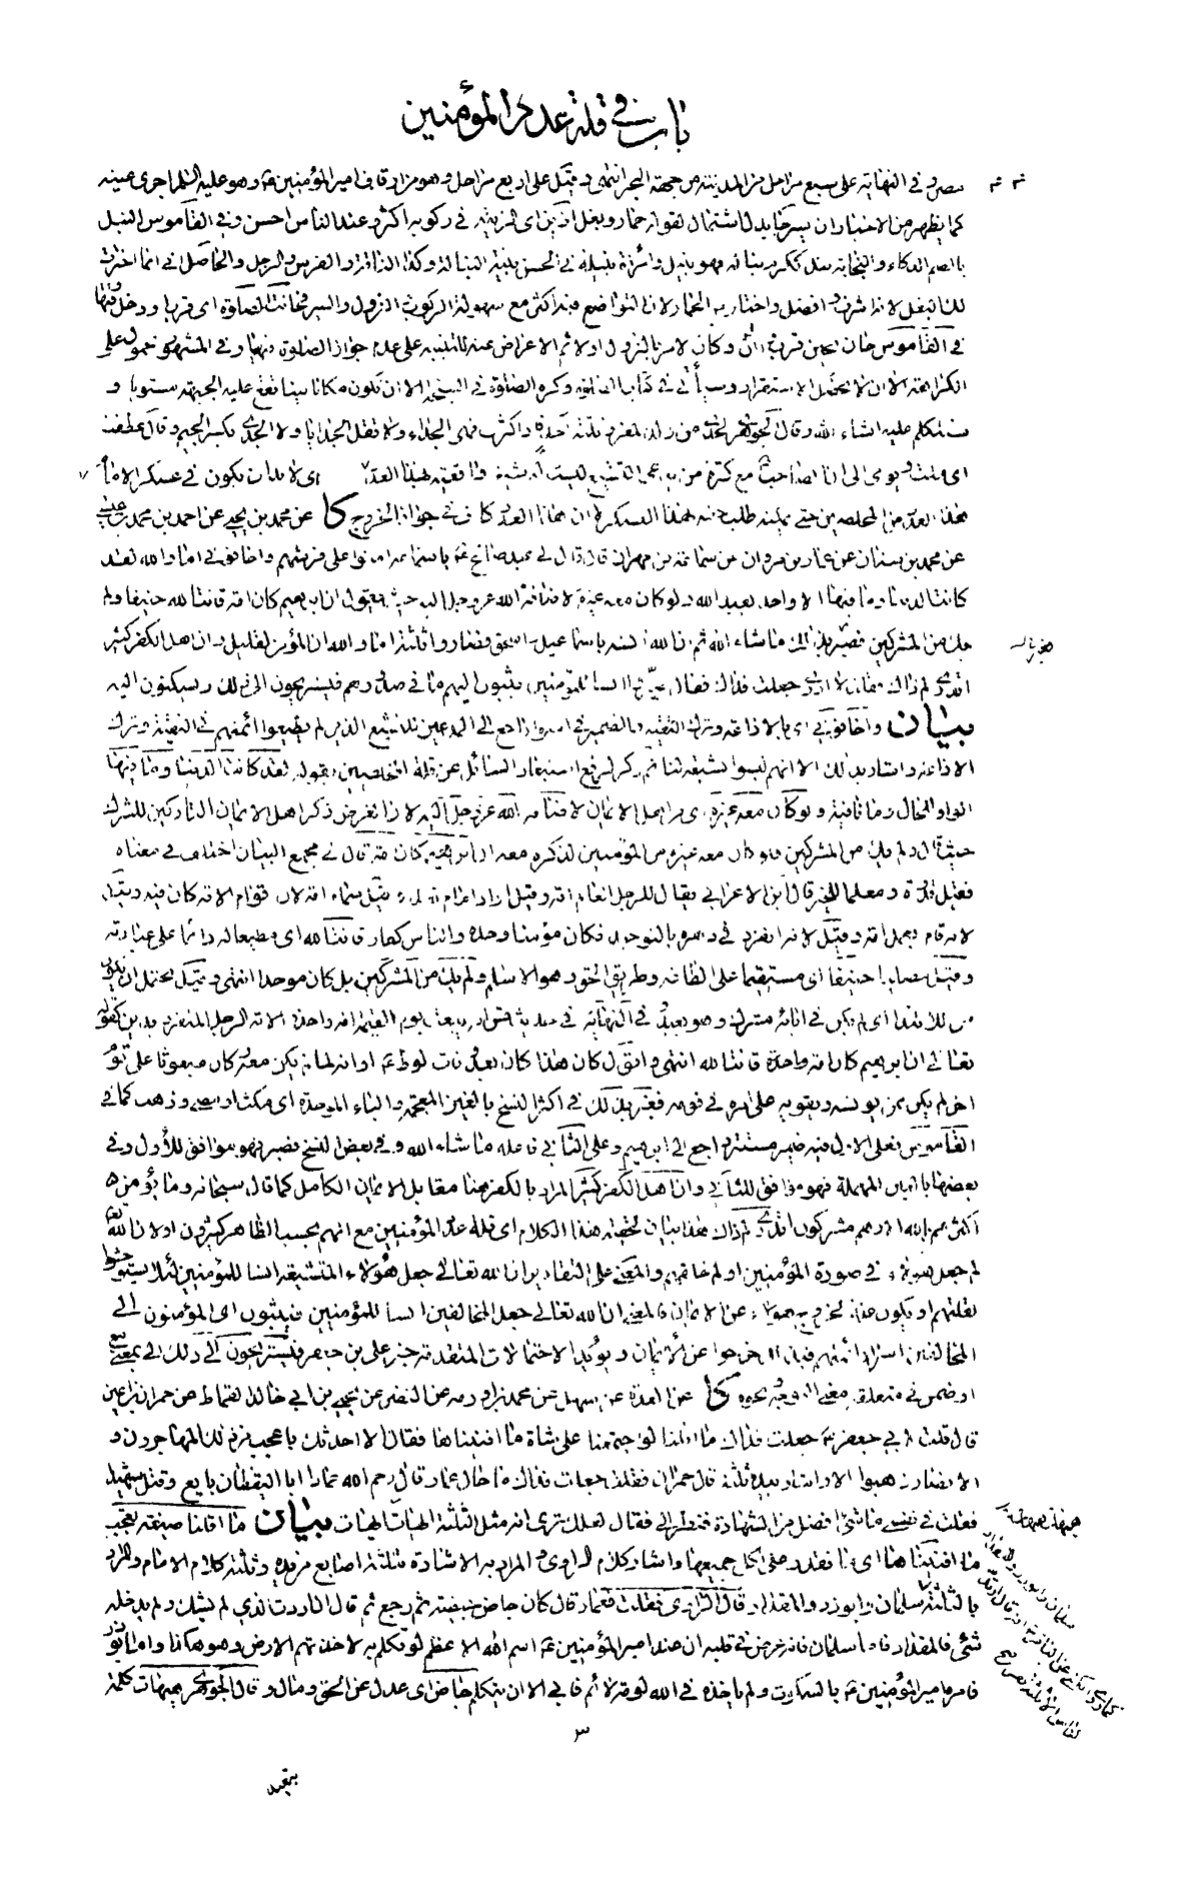 باب في قلة عدد المؤمنين
في النهاية على سبع مراحل من المدينة من جهة البحر انتهى وقيل على اربع مراحل وهو من اوقاف امير المؤمنين ع وهو عليه السلم اجرى عينه
كما يظهر من الاخبار ان يسر لقوله حمار وبغل ازين اى الزينة في ركوبه اكثر وعند الناس احسن وفي القاموس النبل
بالضم الذكاء والنجابة نبل ككرم نبالة فهو نبيل وامرأة نبيلة في الحسن بينة النبالة وكذا الناقة والفرس والرجل والحاصل انى انما اخترت
لك البغل لانه اشرف وافضل واخترت الحمار لان التواضع فيه اكثر مع سهولة الركوب والنزول والسير فحانت الصلوة اى قرب او دخل وقتها
في القاموس حان يحين قرب وآن وكان الامر بالنزول اولا ثم الاعراض عنه للتنبيه على عدم جواز الصلوة فيها وفي المشهور محمول على
الكراهة الا ان لا يحصل الاستقرار وسيأتي في كتاب الصلوة وكره الصلوة في السبخة الا ان تكون مكانا لينا تقع عليه الجبهة مستويا و
سنتكلم عليه انشاء الله وقال الجوهري الجدى من ولد المعز وثلثة اجد فاذا كثرت فهى الجداء ولا تقل الجدايا ولا الجدى بكسر الجيم وقال عطفت
اى ملت ويومى الى ان الصاحب ع مع كثرة من يدعى التشيع ليست له شيعة واقعية بهذا العدد اى لا بد ان يكون في عسكر الامام
هذا العدد من المخلصين حتى يمكنه طلب حقه بهذا العسكر او ان هذا العدد كاف في جواز الخروج كا عن محمد بن يحيى عن احمد بن محمد بن عيسى
عن محمد بن سنان عن عمار بن مروان عن سماعة بن مهران قال قال لى عبد صالح ع يا سماعة امنوا على فرشهم واخافونى اما والله لقد
كانت الدنيا وما فيها الا واحد يعبد الله ولو كان معه غيره لاضافه الله عز وجل اليه حيث يقول ان ابرهيم كان امة قانتا لله حنيفا ولم
يك من المشركين فغبر بذلك ما شاء الله ثم ان الله آنسه باسماعيل واسحق فصاروا ثلثة اما والله ان المؤمن لقليل وان اهل الكفر كثير
اتدرى لم ذاك فقلت لا ادرى جعلت فداك فقال صيروا انسا للمؤمنين يبثون اليهم ما في صدورهم فيستريحون الى ذلك ويسكنون اليه
بيان واخافونى اى بالاذاعة وترك التقية والضمير في امنوا راجع الى المدعين للتشيع الذين لم يطيعوا ائمتهم في التقية وترك
الاذاعة واشار بذلك الى انهم ليسوا بشيعة لنا ثم ذكر لرفع استبعاد السائل عن قلة المخلصين بقوله لقد كانت الدنيا وما فيها
الواو للحال وما نافية ولو كان معه غيره اى من اهل الايمان لاضافه الله عز وجل اليه لان الغرض ذكر اهل الايمان التاركين للشرك
حيث قال ولم يك من المشركين فلو كان معه غيره من المؤمنين لذكره معه ان ابرهيم كان امة قال في مجمع البيان اختلف في معناه
فقيل قدوة ومعلما للخير قال ابن الاعرابي يقال للرجل العالم امة وقيل اراد امام هدى وقيل سماه امة لان قوام الامة كان فيه وقيل
لانه قام بعمل امة وقيل لانه انفرد في دهره بالتوحيد فكان مؤمنا وحده والناس كفار قانتا لله اى مطيعا له دائما على عبادته
وقيل مصليا حنيفا اى مستقيما على الطاعة وطريق الحق وهو الاسلام ولم يك من المشركين بل كان موحدا انتهى وقيل يحتمل ان يكون
من للابتداء اى لم يكن في آبائه مشرك وهو بعيد وفي النهاية في حديث قس انه يبعث يوم القيمة امة واحدة الامة الرجل المنفرد بدين كقوله
تعالى ان ابرهيم كان امة قانتا لله انتهى واقول كان هذا كان بعد وفات لوط ع او انه لما لم يكن معه كان مبعوثا على قوم
اخر لم يكن ممن يونسه ويقويه على امره في قومه فغبر بذلك في اكثر النسخ بالغين المعجمة والباء الموحدة اى مكث او مضى وذهب كما في
القاموس فعلى الاول فيه ضمير مستتر راجع الى ابرهيم وعلى الثاني فاعله ما شاء الله وفي بعض النسخ فصبر فهو موافق للأول وفي
بعضها بالعين المهملة فهو موافق للثاني وان اهل الكفر كثير المراد بالكفر هنا مقابل الايمان الكامل كما قال سبحانه وما يؤمن
اكثرهم بالله الا وهم مشركون اتدرى لم ذاك هذا بيان لحقيقة هذا الكلام اى قلة عدد المؤمنين مع انهم بحسب الظاهر كثيرون او لان الله تعالى
لم جعل هؤلاء في صورة المؤمنين او لم خلقهم والمعنى على التقادير ان الله تعالى جعل هؤلاء المتشيعة انسا للمؤمنين لئلا يستوحشوا
لقلتهم او يكون علة لخروج هؤلاء عن الايمان فالمعنى ان الله تعالى جعل المخالفين انسا للمؤمنين فيبثون اى المؤمنون الى
المخالفين اسرار ائمتهم فبذلك خرجوا عن الايمان ويؤيد الاحتمالات المتقدمة خبر على بن جعفر فيستريحون الى ذلك الى بمعنى مع
او ضمن فيه متعلقه معنى التوجه ونحوه كا عن العدة عن سهل عن محمد بن اورمة عن النضر عن يحيى بن ابى خالد القماط عن حمران بن اعين
قال قلت لابى جعفر ع جعلت فداك ما اقلنا لو اجتمعنا على شاة ما افنيناها فقال الا احدثك باعجب من ذلك المهاجرون و
الانصار ذهبوا الا واشار بيده ثلثة قال حمران فقلت جعلت فداك ما حال عمار قال رحم الله عمارا ابا اليقظان بايع وقتل شهيدا
فقلت في نفسى ما شئ افضل من الشهادة فنظر الى فقال لعلك ترى انه مثل الثلثة ايهات ايهات بيان ما اقلنا صيغة تعجب
ما افنيناها اى ما نقدر على اكل جميعها واشار كلام الراوى والمراد به الاشارة بثلثة اصابع من يده وثلثة كلام الامام والمراد
بالثلثة سلمان وابوذر والمقداد وقال الراوى فقلت فعمار قال كان جاض جيضة ثم رجع ثم قال ان اردت الذى لم يشك ولم يدخله
شئ فالمقداد فاما سلمان فانه عرض في قلبه ان عند امير المؤمنين ع اسم الله الاعظم لو تكلم به لاخذتهم الارض وهو هكذا واما ابوذر
فامره امير المؤمنين ع بالسكوت ولم يأخذه في الله لومة لائم فابى الا ان يتكلم جاض اى عدل عن الحق ومال وقال الجوهرى هيهات كلمة
٣
تبعيد